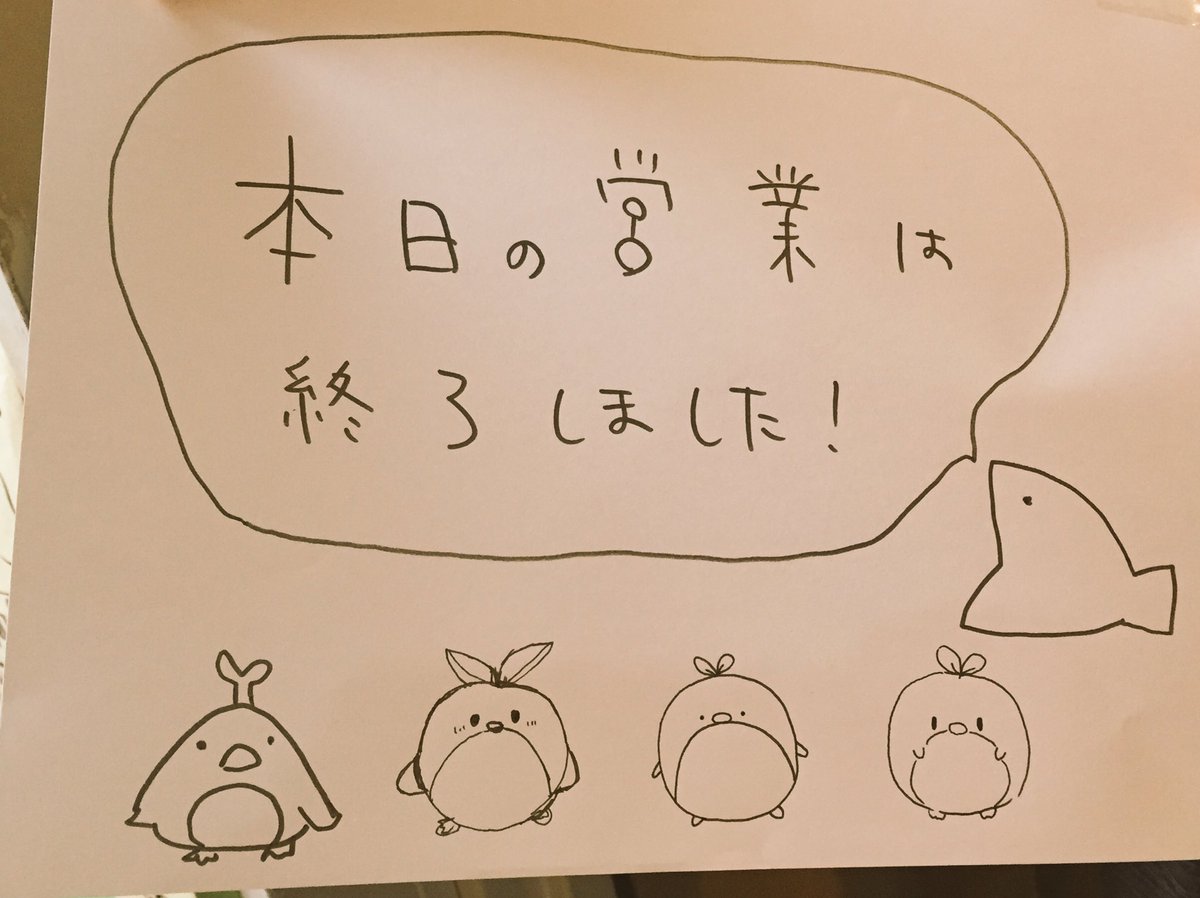 本日の営業は
終了しました!